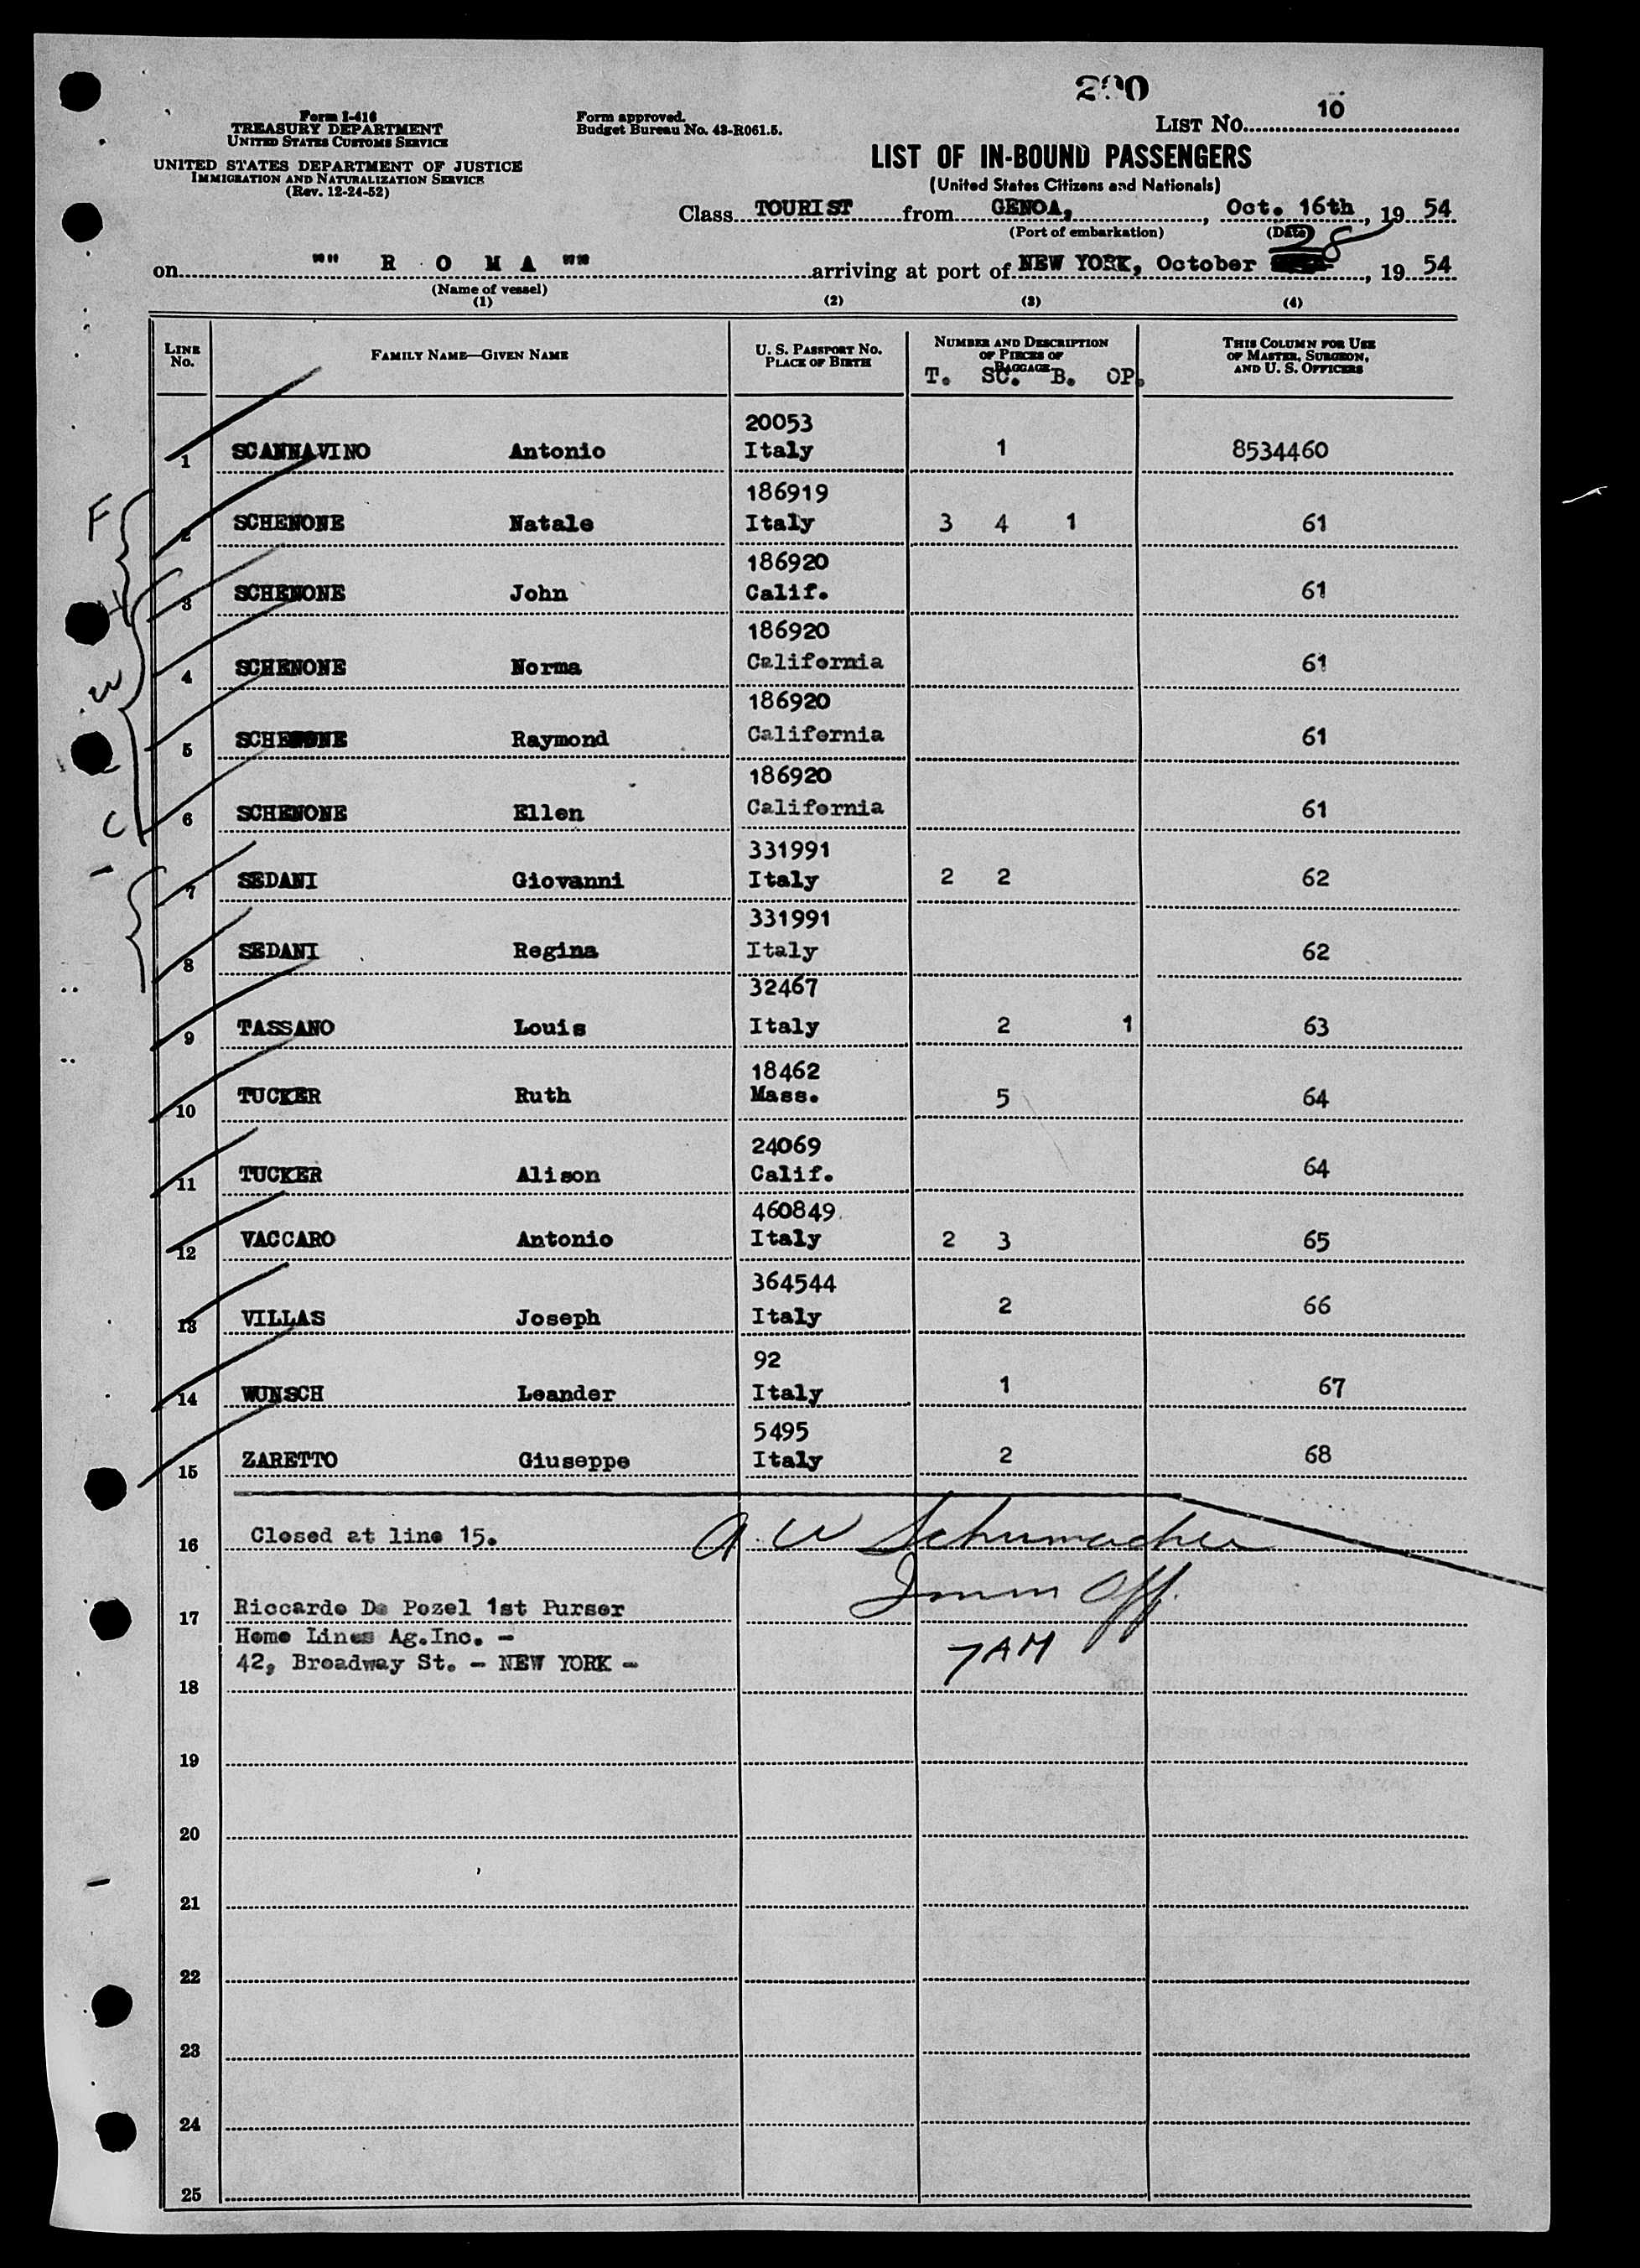 290
Form I-416
TREASURY DEPARTMENT
UNITED STATES CUSTOMS SERVICE
UNITED STATES DEPARTMENT OF JUSTICE
IMMIGRATION AND NATURALIZATION SERVICE
(Rev. 12-24-52)
Form approved.
Budget Bureau No. 43-R061.5.
LIST NO. 10
LIST OF IN-BOUND PASSENGERS
(United States Citizens and Nationals)
Class TOURIST from GENOA, , Oct. 16th , 19 54
(Port of embarkation) (Date)
on "" R O M A "" arriving at port of NEW YORK, October 28 , 19 54
(Name of vessel)
(1) (2) (3) (4)
LINE No. FAMILY NAME—GIVEN NAME U. S. PASSPORT NO. PLACE OF BIRTH NUMBER AND DESCRIPTION OF PIECES OF BAGGAGE THIS COLUMN FOR USE OF MASTER, SURGEON, AND U. S. OFFICERS
T. SC. B. OP.
20053
1 SCANNAVINO Antonio Italy 1 8534460
F
186919
2 SCHENONE Natale Italy 3 4 1 61
186920
3 SCHENONE John Calif. 61
186920
W
4 SCHENONE Norma California 61
186920
5 SCHENONE Raymond California 61
186920
C
6 SCHENONE Ellen California 61
331991
7 SEDANI Giovanni Italy 2 2 62
331991
8 SEDANI Regina Italy 62
32467
9 TASSANO Louis Italy 2 1 63
18462
10 TUCKER Ruth Mass. 5 64
24069
11 TUCKER Alison Calif. 64
460849
12 VACCARO Antonio Italy 2 3 65
364544
13 VILLAS Joseph Italy 2 66
92
14 WUNSCH Leander Italy 1 67
5495
15 ZARETTO Giuseppe Italy 2 68
16 Closed at line 15. A W Schumacher
Imm Off.
17 Riccardo De Pozel 1st Purser
Home Lines Ag.Inc. -
7 AM
42, Broadway St. - NEW YORK -
18
19
20
21
22
23
24
25